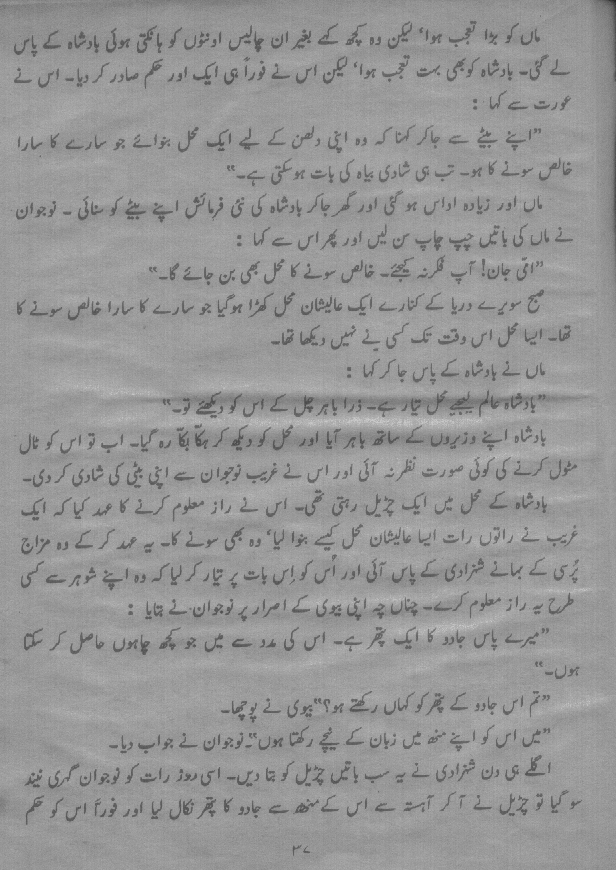 ماں کو بڑا تعجب ہوا، لیکن وہ کچھ کہے بغیر ان چالیس اونٹوں کو ہانکتی ہوئی بادشاہ کے پاس
لے گئی۔ بادشاہ کو بھی بہت تعجب ہوا، لیکن اس نے فوراً ہی ایک اور حکم صادر کر دیا۔ اس نے
عورت سے کہا :
”اپنے بیٹے سے جا کر کہنا کہ وہ اپنی دلھن کے لیے ایک محل بنوائے جو سارے کا سارا
خالص سونے کا ہو۔ تب ہی شادی بیاہ کی بات ہو سکتی ہے۔“
ماں اور زیادہ اداس ہو گئی اور گھر جا کر بادشاہ کی نئی فرمائش اپنے بیٹے کو سنائی ۔ نوجوان
نے ماں کی باتیں چپ چاپ سن لیں اور پھر اس سے کہا :
”امّی جان! آپ فکر نہ کیجئے۔ خالص سونے کا محل بھی بن جائے گا۔“
صبح سویرے دریا کے کنارے ایک عالیشان محل کھڑا ہو گیا جو سارے کا سارا خالص سونے کا
تھا۔ ایسا محل اس وقت تک کسی نے نہیں دیکھا تھا۔
ماں نے بادشاہ کے پاس جا کر کہا :
”بادشاہ عالم لیجیے محل تیار ہے۔ ذرا باہر چل کے اس کو دیکھئے تو۔“
بادشاہ اپنے وزیروں کے ساتھ باہر آیا اور محل کو دیکھ کر ہکّا بکّا رہ گیا۔ اب تو اس کو ٹال
مٹول کرنے کی کوئی صورت نظر نہ آئی اور اس نے غریب نوجوان سے اپنی بیٹی کی شادی کر دی۔
بادشاہ کے محل میں ایک چڑیل رہتی تھی۔ اس نے راز معلوم کرنے کا عہد کیا کہ ایک
غریب نے راتوں رات ایسا عالیشان محل کیسے بنوا لیا، وہ بھی سونے کا۔ یہ عہد کر کے وہ مزاج
پُرسی کے بہانے شہزادی کے پاس آئی اور اُس کو اِس بات پر تیار کر لیا کہ وہ اپنے شوہر سے کسی
طرح یہ راز معلوم کرے۔ چناں چہ اپنی بیوی کے اصرار پر نوجوان نے بتایا :
”میرے پاس جادو کا ایک پتھر ہے۔ اس کی مدد سے میں جو کچھ چاہوں حاصل کر سکتا
ہوں۔“
”تم اس جادو کے پتھر کو کہاں رکھتے ہو؟“ بیوی نے پوچھا۔
”میں اس کو اپنے منھ میں زبان کے نیچے رکھتا ہوں“۔ نوجوان نے جواب دیا۔
اگلے ہی دن شہزادی نے یہ سب باتیں چڑیل کو بتا دیں۔ اسی روز رات کو نوجوان گہری نیند
سو گیا تو چڑیل نے آ کر آہستہ سے اس کے منھ سے جادو کا پتھر نکال لیا اور فوراً اس کو حکم
۳۷